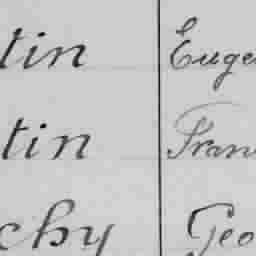 tin Euge
tin Fran
chy Geo